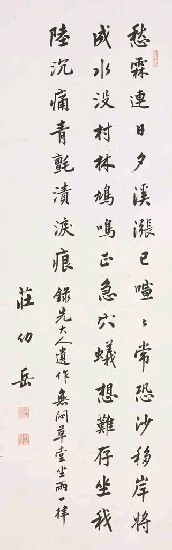 愁霖連日夕溪漲已喧〻常恐沙移岸將
成水没村林鳩鳴正急穴蟻想難存坐我
陸沉痛青氈漬淚痕 錄先大人遺作無悶草堂坐雨一律
莊幼岳